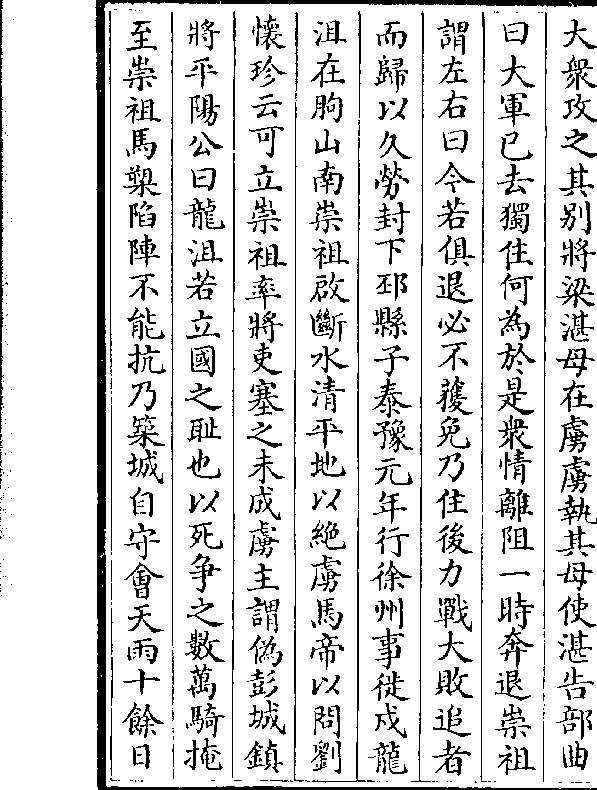 大衆攻之其别將梁湛母在虜虜執其母使湛告部曲
曰大軍已去獨住何為於是衆情離阻一時奔退崇祖
謂左右曰今若俱退必不獲免乃住後力戰大敗追者
而歸以久勞封下邳縣子泰豫元年行徐州事徙戍龍
沮在朐山南崇祖啟斷水清平地以絶虜馬帝以問劉
懷珍云可立崇祖率將吏塞之未成虜主謂偽彭城鎮
將平陽公曰龍沮若立國之耻也以死争之數萬騎掩
至崇祖馬槊陷陣不能抗乃築城自守會天雨十餘日